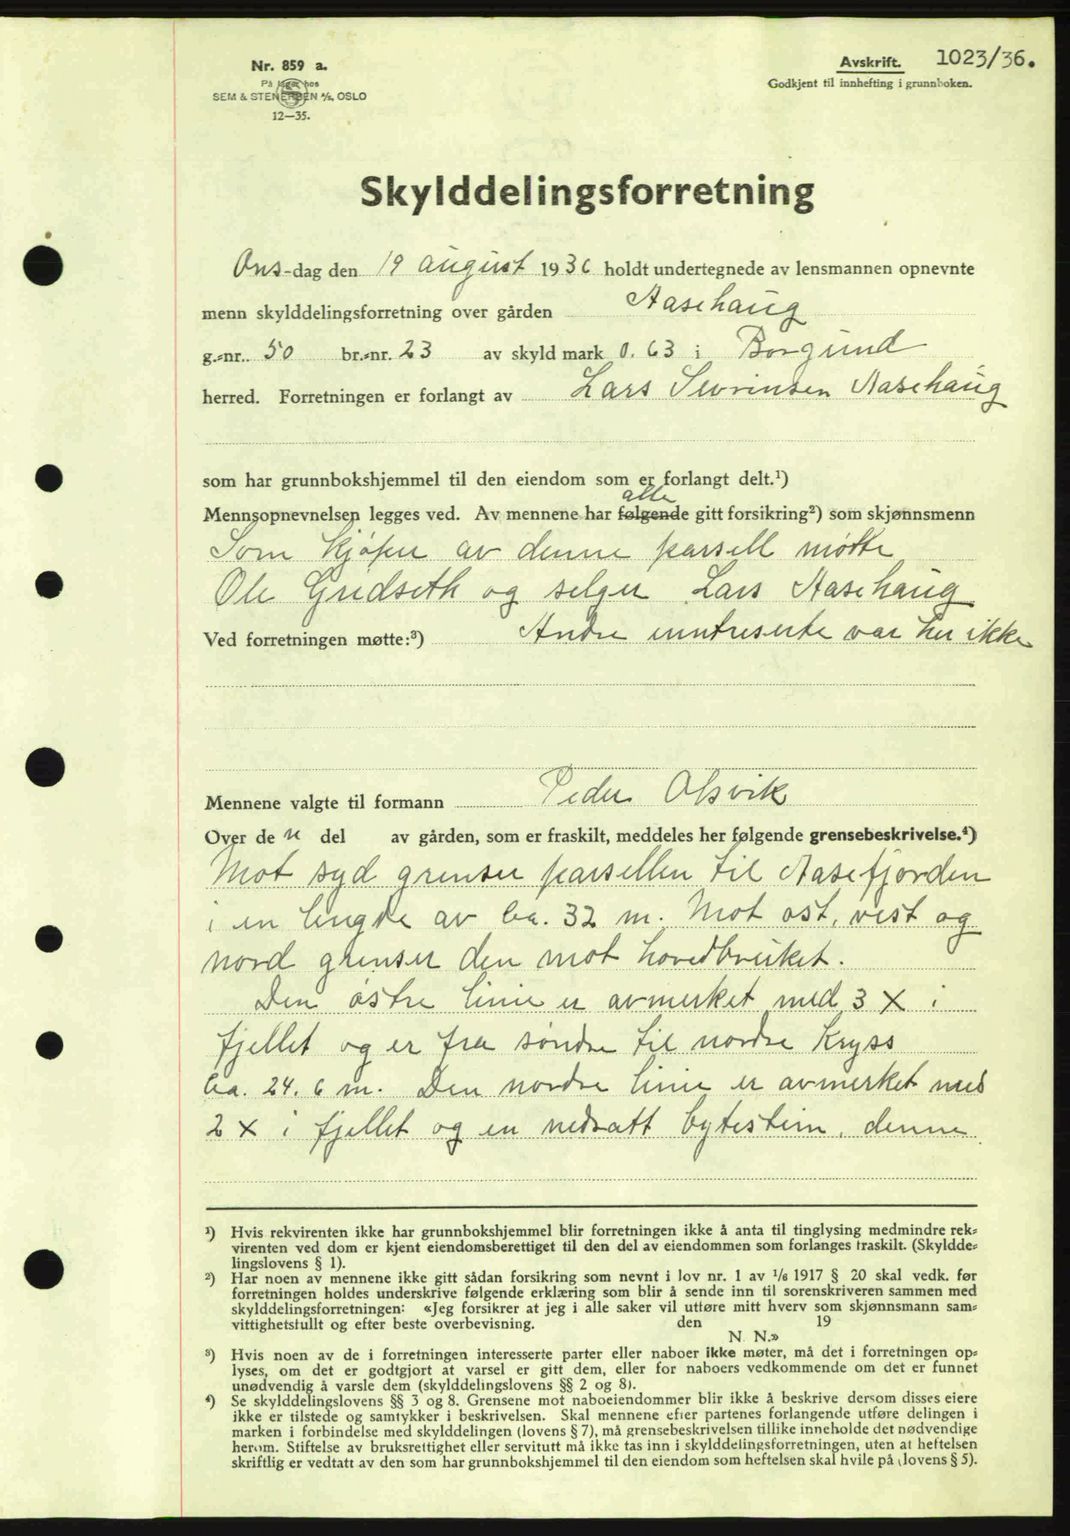 Nr. 859 a.
På lager hos
SEM & STENERSEN A/S, OSLO
12—35.
Avskrift. 1023/36.
Godkjent til innhefting i grunnboken.
Skylddelingsforretning
Ons-dag den 19 august 1936 holdt undertegnede av lensmannen opnevnte
menn skylddelingsforretning over gården Aasehaug
g.-nr. 50 br.-nr. 23 av skyld mark 0.63 i Borgund
herred. Forretningen er forlangt av Lars Sevrinsen Aasehaug
som har grunnbokshjemmel til den eiendom som er forlangt delt.¹)
alle
Mennsopnevnelsen legges ved. Av mennene har følgende gitt forsikring²) som skjønnsmenn
Som kjøper av denne parsell møtte
Ole Gredseth og selger Lars Aasehaug
Ved forretningen møtte:³) Andre inntreserte var her ikke
Mennene valgte til formann Peder Alsvik
Over de n del av gården, som er fraskilt, meddeles her følgende grensebeskrivelse.⁴)
Mot syd grenser parsellen til Aasefjorden
i en lengde av ca. 32 m. Mot ost, vest og
nord grenser den mot hovedbruket.
Den østre linie er avmerket med 3 X i
fjellet og er fra søndre til nordre Kryss
ca. 24.6 m. Den nordre linie er avmerket med
2 X i fjellet og en nedsatt bytestein, denne
¹) Hvis rekvirenten ikke har grunnbokshjemmel blir forretningen ikke å anta til tinglysing medmindre rek-
virenten ved dom er kjent eiendomsberettiget til den del av eiendommen som forlanges fraskilt. (Skyldde-
lingslovens § 1).
²) Har noen av mennene ikke gitt sådan forsikring som nevnt i lov nr. 1 av 1/6 1917 § 20 skal vedk. før
forretningen holdes underskrive følgende erklæring som blir å sende inn til sorenskriveren sammen med
skylddelingsforretningen: «Jeg forsikrer at jeg i alle saker vil utføre mitt hverv som skjønnsmann sam-
vittighetsfullt og efter beste overbevisning. den 19
N. N.»
³) Hvis noen av de i forretningen interesserte parter eller naboer ikke møter, må det i forretningen op-
lyses, om det er godtgjort at varsel er gitt dem, eller for naboers vedkommende om det er funnet
unødvendig å varsle dem (skylddelingslovens §§ 2 og 8).
⁴) Se skylddelingslovens §§ 3 og 8. Grensene mot naboeiendommer blir ikke å beskrive dersom disses eiere
ikke er tilstede og samtykker i beskrivelsen. Skal mennene efter partenes forlangende utføre delingen i
marken i forbindelse med skylddelingen (lovens § 7), må grensebeskrivelsen tillike inneholde det nødvendige
herom. Stiftelse av bruksrettighet eller servitutt må ikke tas inn i skylddelingsforretningen, uten at heftelsen
skriftlig er vedtatt av den som har grunnbokshjemmel til den eiendom som heftelsen skal hvile på (lovens § 5).